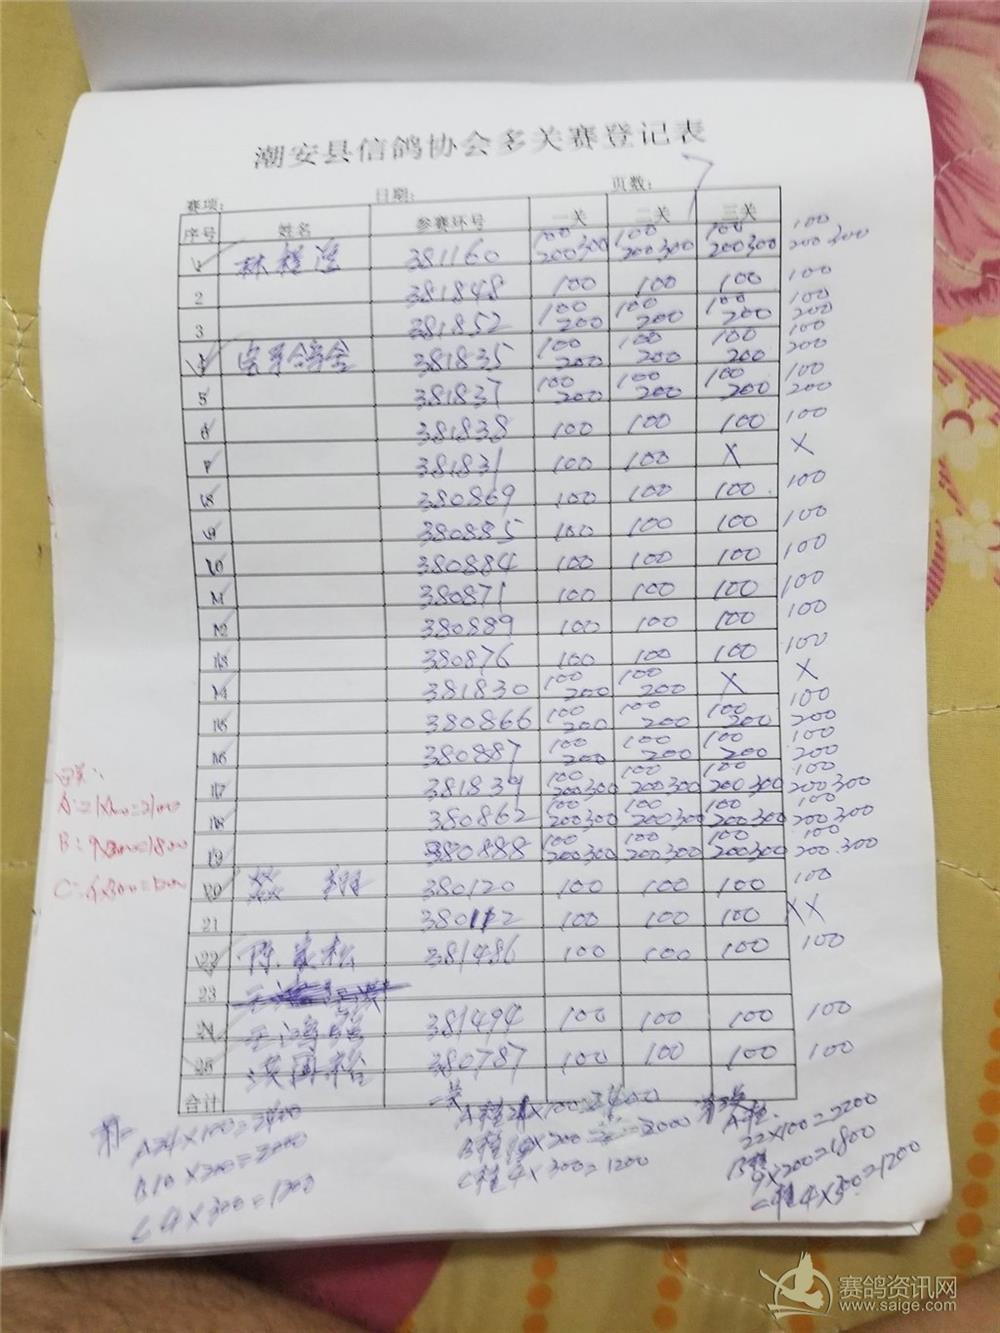 潮安县信鸽协会多关赛登记表
赛项: 日期: 页数: 7
序号 姓名 参赛环号 一关 二关 三关
1 381160 100 200 300 100 200 300 100 200 300 100 200 300
2 381848 100 100 100 100
3 381852 100 200 100 200 100 200 100 200
4 381835 100 200 100 200 100 200 100 200
5 381837 100 200 100 200 100 200 100 200
6 381838 100 100 100 100
7 381831 100 100 X X
8 380869 100 100 100 100
9 380885 100 100 100 100
10 380884 100 100 100 100
11 380871 100 100 100 100
12 380889 100 100 100 100
13 380876 100 100 100 100
14 381830 100 200 100 200 X X
15 380866 100 200 100 200 100 200 100 200
16 380887 100 200 100 200 100 200 100 200
17 381839 100 200 300 100 200 300 100 200 300 100 200 300
18 380862 100 200 300 100 200 300 100 200 300 100 200 300
19 380888 100 200 300 100 200 300 100 200 300 100 200.300
20 翔 380120 100 100 100 100
21 380112 100 100 100 XX
22 陈家松 381486 100 100 100 100
23
24 381494 100 100 100 100
25 380787 100 100 100 100
合计
A 24×100=2400
B10×200=2000
C 4×300=1200
C程 4×300=1200
22×100=2200
9×200=1800
C程4×300=1200
赛鸽资讯网
www.saige.com